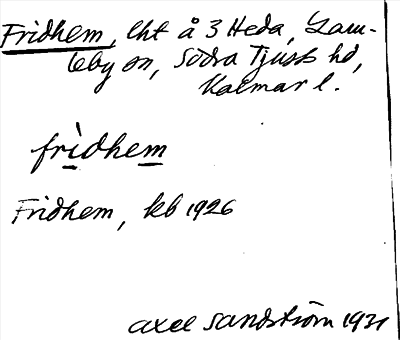 Fridhem, lht å 3 Heda, Gam-
leby sn, Södra Tjusts hd,
Kalmar l.
frìdhem
Fridhem, kb 1926
Axel Sandström 1931